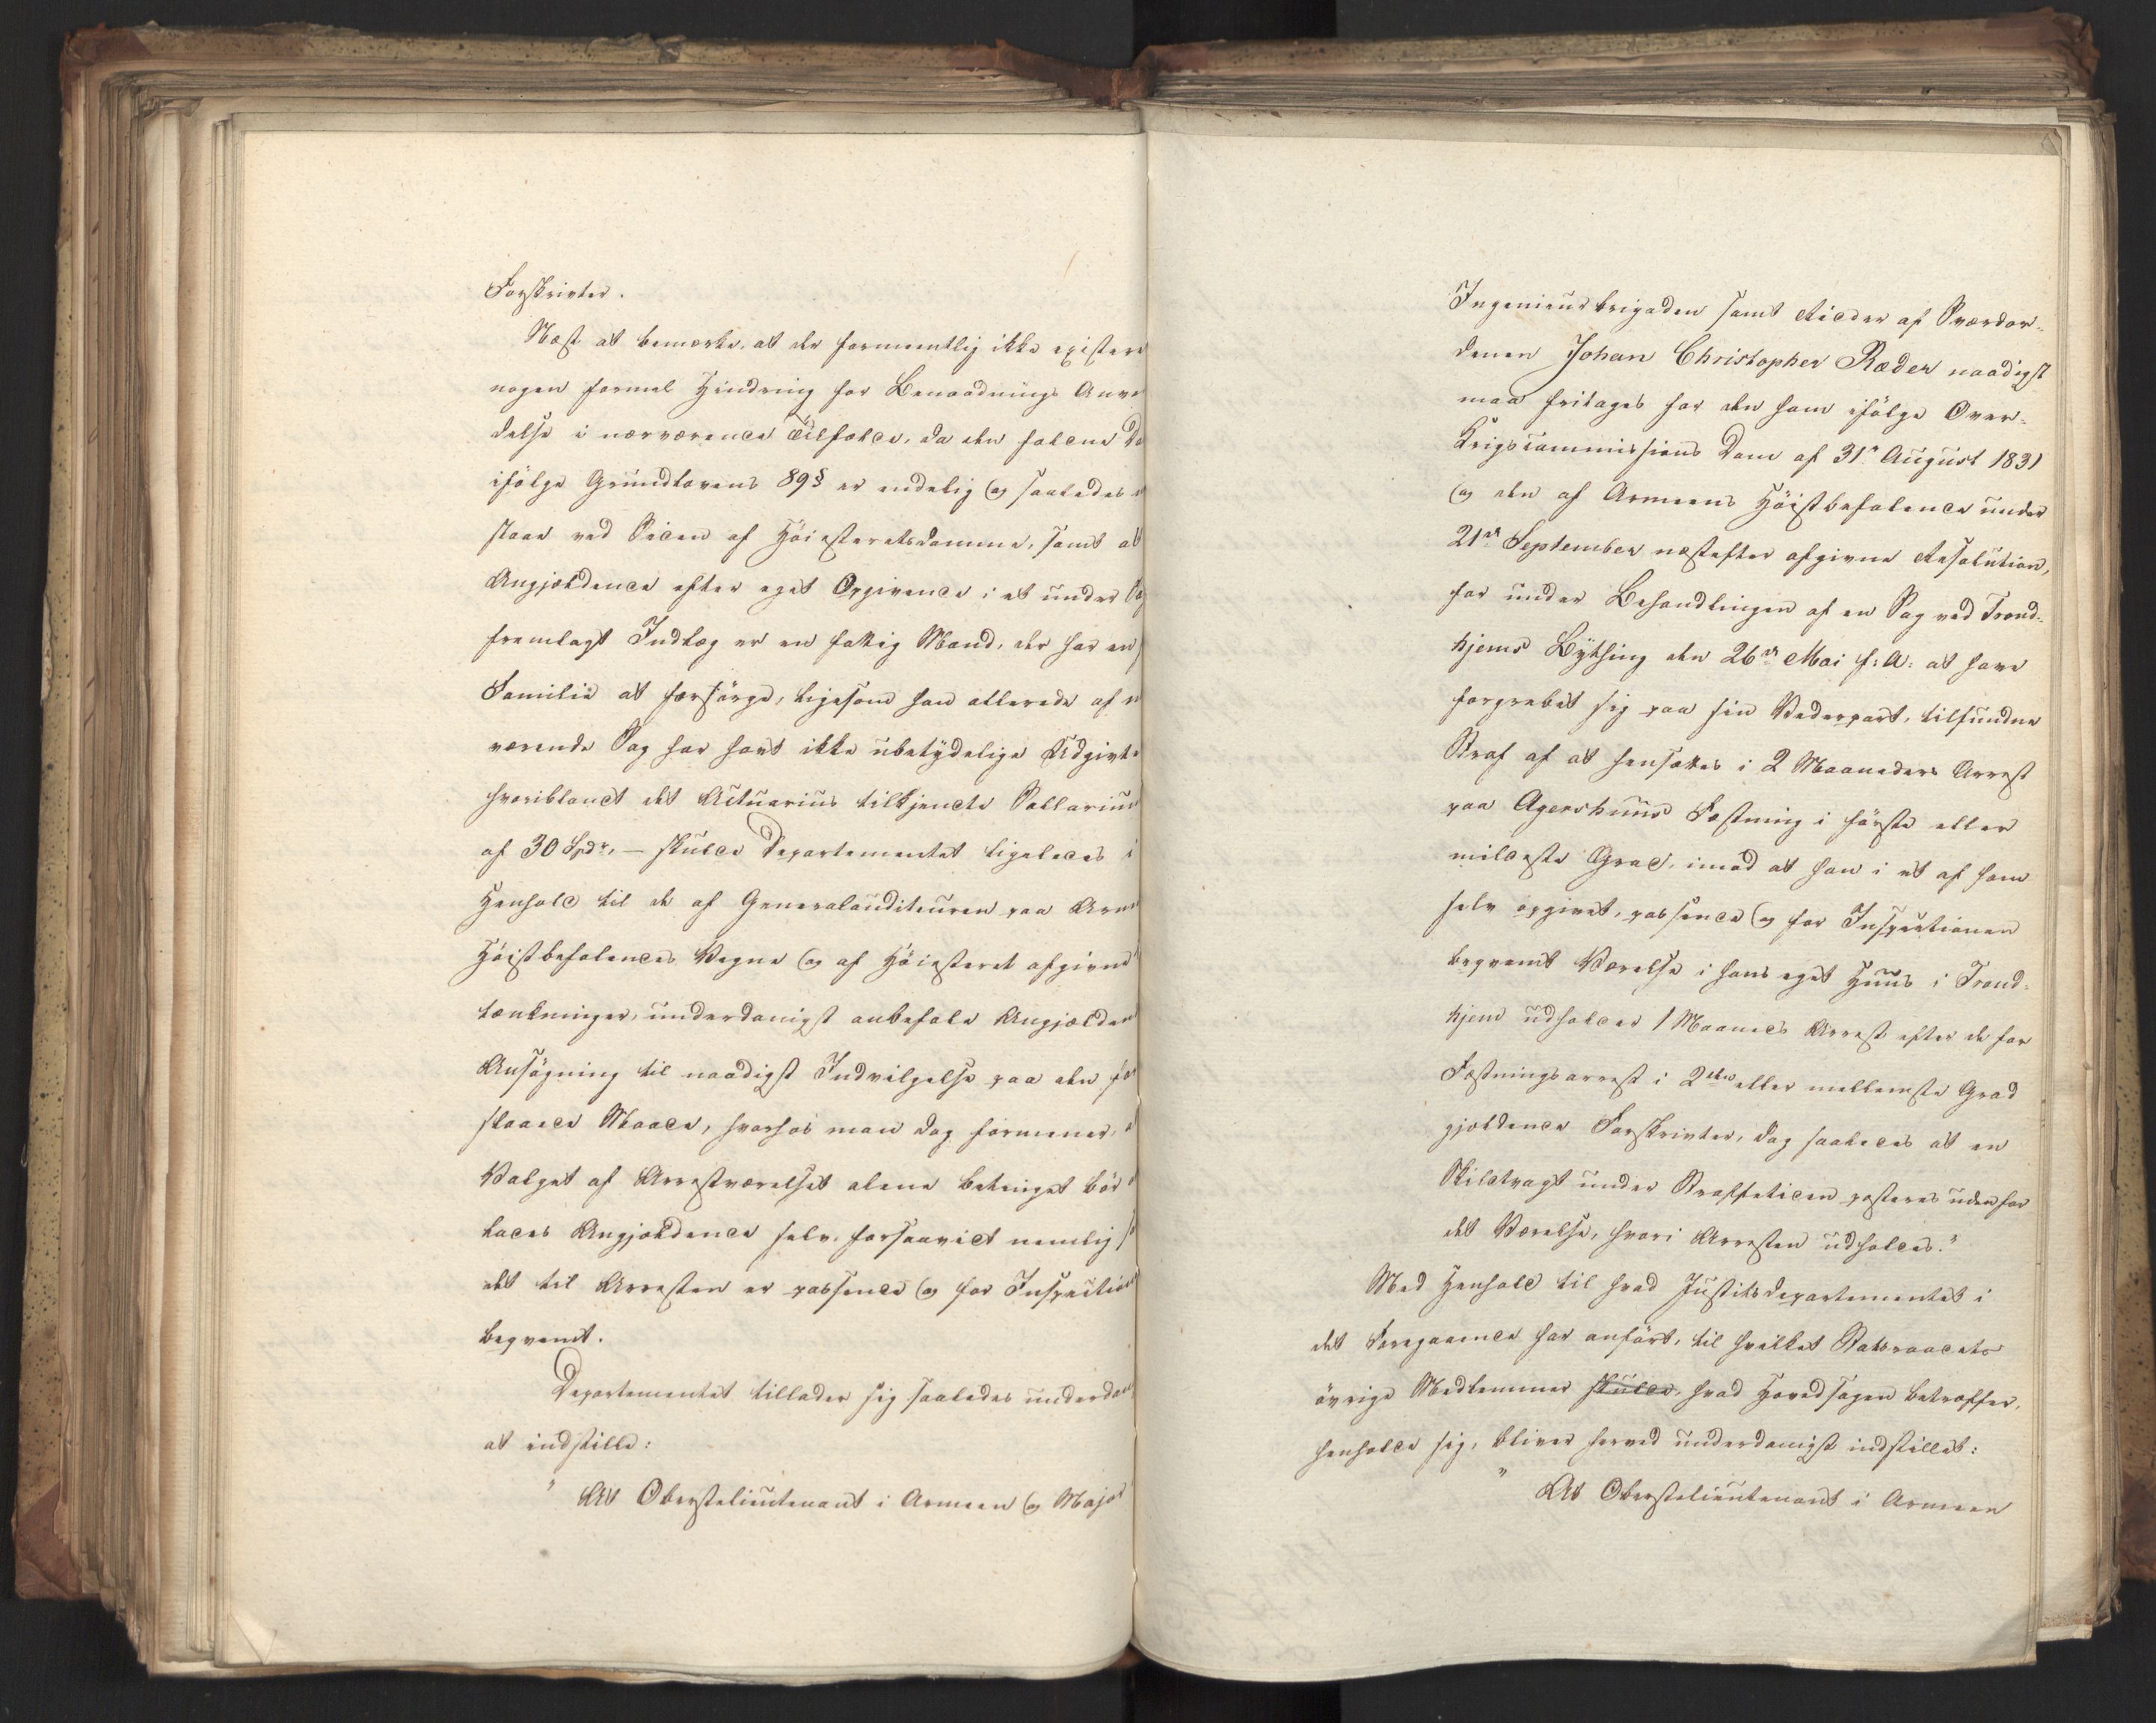 Forskrivter.
Næst at bemærke, at der formeentlig ikke existere
nogen formel Hindring for Benaadnings Anven
delse i nærværende Tilfælde, da den faldne Do
ifölge Grundlovens 89§ er endelig og saaledes
staar ved Siden af Höiesteretsdomme, samt at
Angjældende efter eget Opgivende i et under Sag
fremlagt Indlæg er en fattig Mand, der har en
Familie at forsörge, ligesom han allerede af n
værende Sag har havt ikke ubetydelige Udgivte
hvoriblandt det Actuarius tilkjendte Sallarium
af 30 Spdr, – skulde Departementet ligeledes i
Henhold til de af Generalauditeuren paa Arme
Höistbefalendes Vegne og af Höiesteret afgivne
tænkninger, underdanigst anbefale Angjælden
Ansögning til naadigst Indvilgelse paa den fo
staaede Maade, hvorhos man dog formener, a
Valget af Arrestværelset alene betinget bör
lades Angjældende selv, forsaavidt nemlig
det til Arresten er passende og for Inspection
beqvemt.
Departementet tillader sig saaledes underdan
at indstille:
" At Oberstelieutenant i Armeen og Major
Ingenieurbrigaden samt Ridder af Sværdor-
denen Johan Christopher Ræder naadigst
maa fritages for den ham ifölge Over-
Krigscommissions Dom af 31te August 1831
og den af Armeens Höistbefalende under
21de September næstefter afgivne Resolution,
for under Behandlingen af en Sag ved Trond-
hjems Bything den 26de Mai f: A: at have
forgrebet sig paa sin Vederpart, tilfundne
Straf af at hensættes i 2 Maaneders Arrest
paa Agershuus Fæstning i förste eller
mildeste Grad, imod at han i et af ham
selv opgivet, passende og for Inspectionen
beqvemt Værelse i hans eget Huus i Trond-
hjem udholder 1 Maaneds Arrest efter de for
Fæstningsarrest i 2den eller mellemste Grad
gjældende Forskrivter, dog saaledes at en
Skildtvagt under Straffetiden posteres udenfor
det Værelse, hvori Arresten udholdes."
Med Henhold til hvad Justitsdepartementet i
det Foregaaende har anfört, til hvilket Statsraadets
övrige Medlemmer skulde, hvad Hovedsagen betræffer,
henholde sig, bliver herved underdanigst indstillet:
" At Oberstelieutenant i Armeen